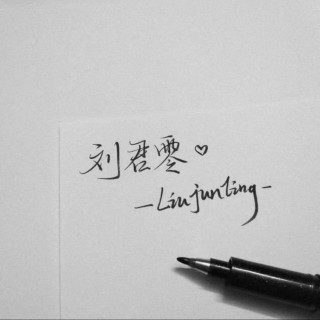 刘君零♡
-Liujunling-